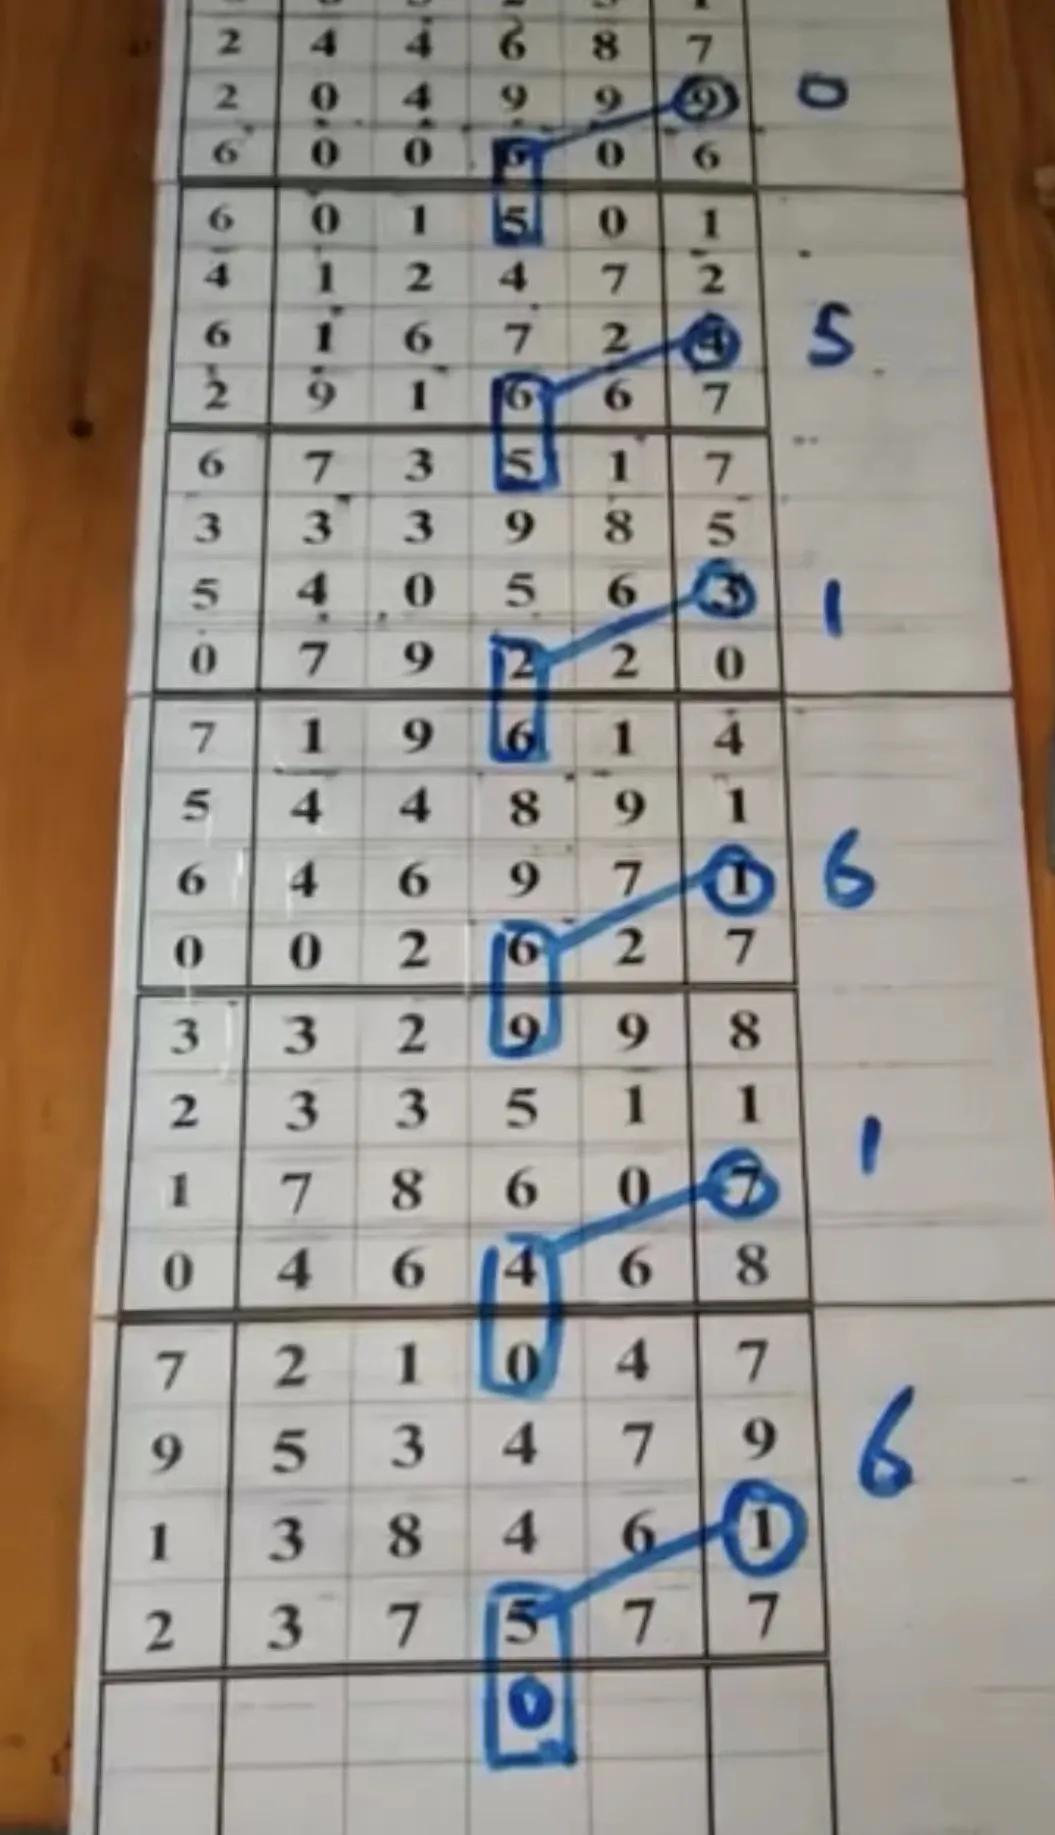 2 4 4 6 8 7
2 0 4 9 9 9 0
6 0 0 6 0 6
6 0 1 5 0 1
4 1 2 4 7 2
6 1 6 7 2 4 5
2 9 1 6 6 7
6 7 3 5 1 7
3 3 3 9 8 5
5 4 0 5 6 3 1
0 7 9 2 2 0
7 1 9 6 1 4
5 4 4 8 9 1
6 4 6 9 7 1 6
0 0 2 6 2 7
3 3 2 9 9 8
2 3 3 5 1 1
1 7 8 6 0 7 1
0 4 6 4 6 8
7 2 1 0 4 7
9 5 3 4 7 9 6
1 3 8 4 6 1
2 3 7 5 7 7
0